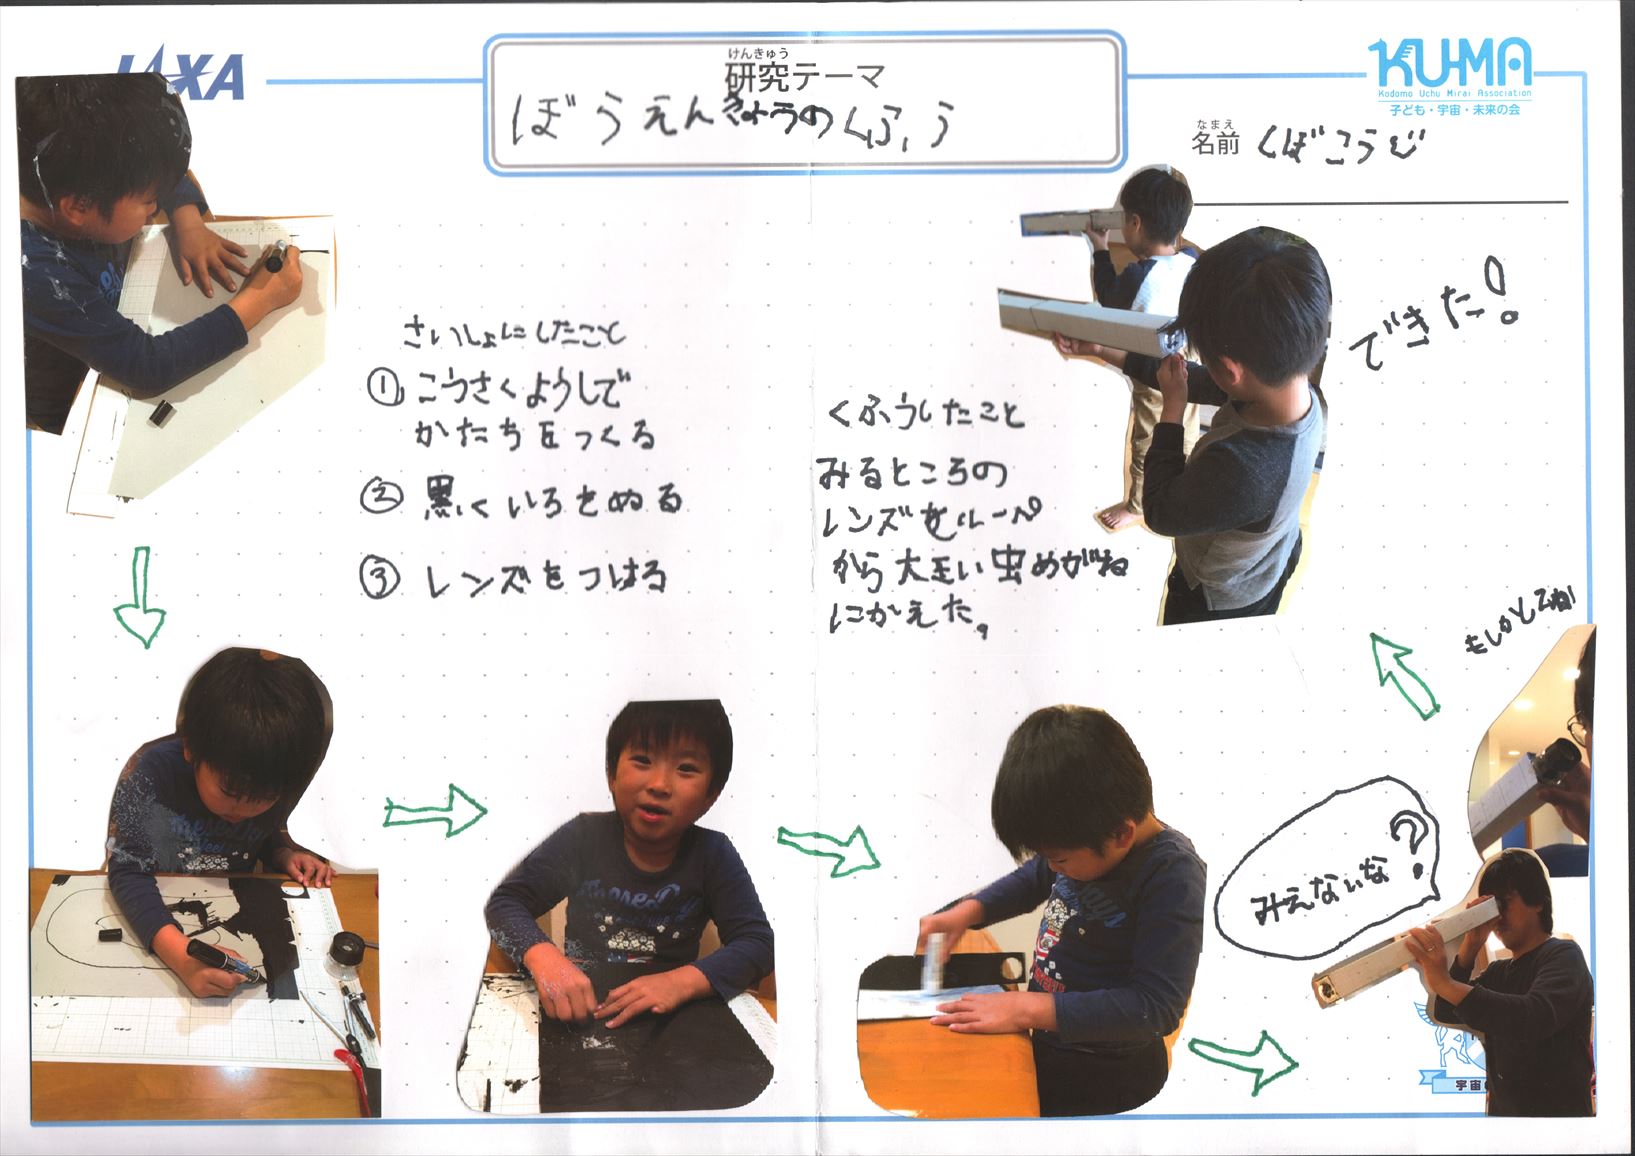 JAXA
けんきゅう
研究テーマ
ぼうえんきょうのくふう
KU-MA
Kodomo Uchu Mirai Association
子ども・宇宙・未来の会
なまえ
名前 くぼこうじ
さいしょにしたこと
① こうさくようしで
かたちをつくる
② 黒くいろをぬる
③ レンズをつける
くふうしたこと
みるところの
レンズをルーペ
から大きい虫めがね
にかえた。
できた!
もしかして
みえないな?
宇宙